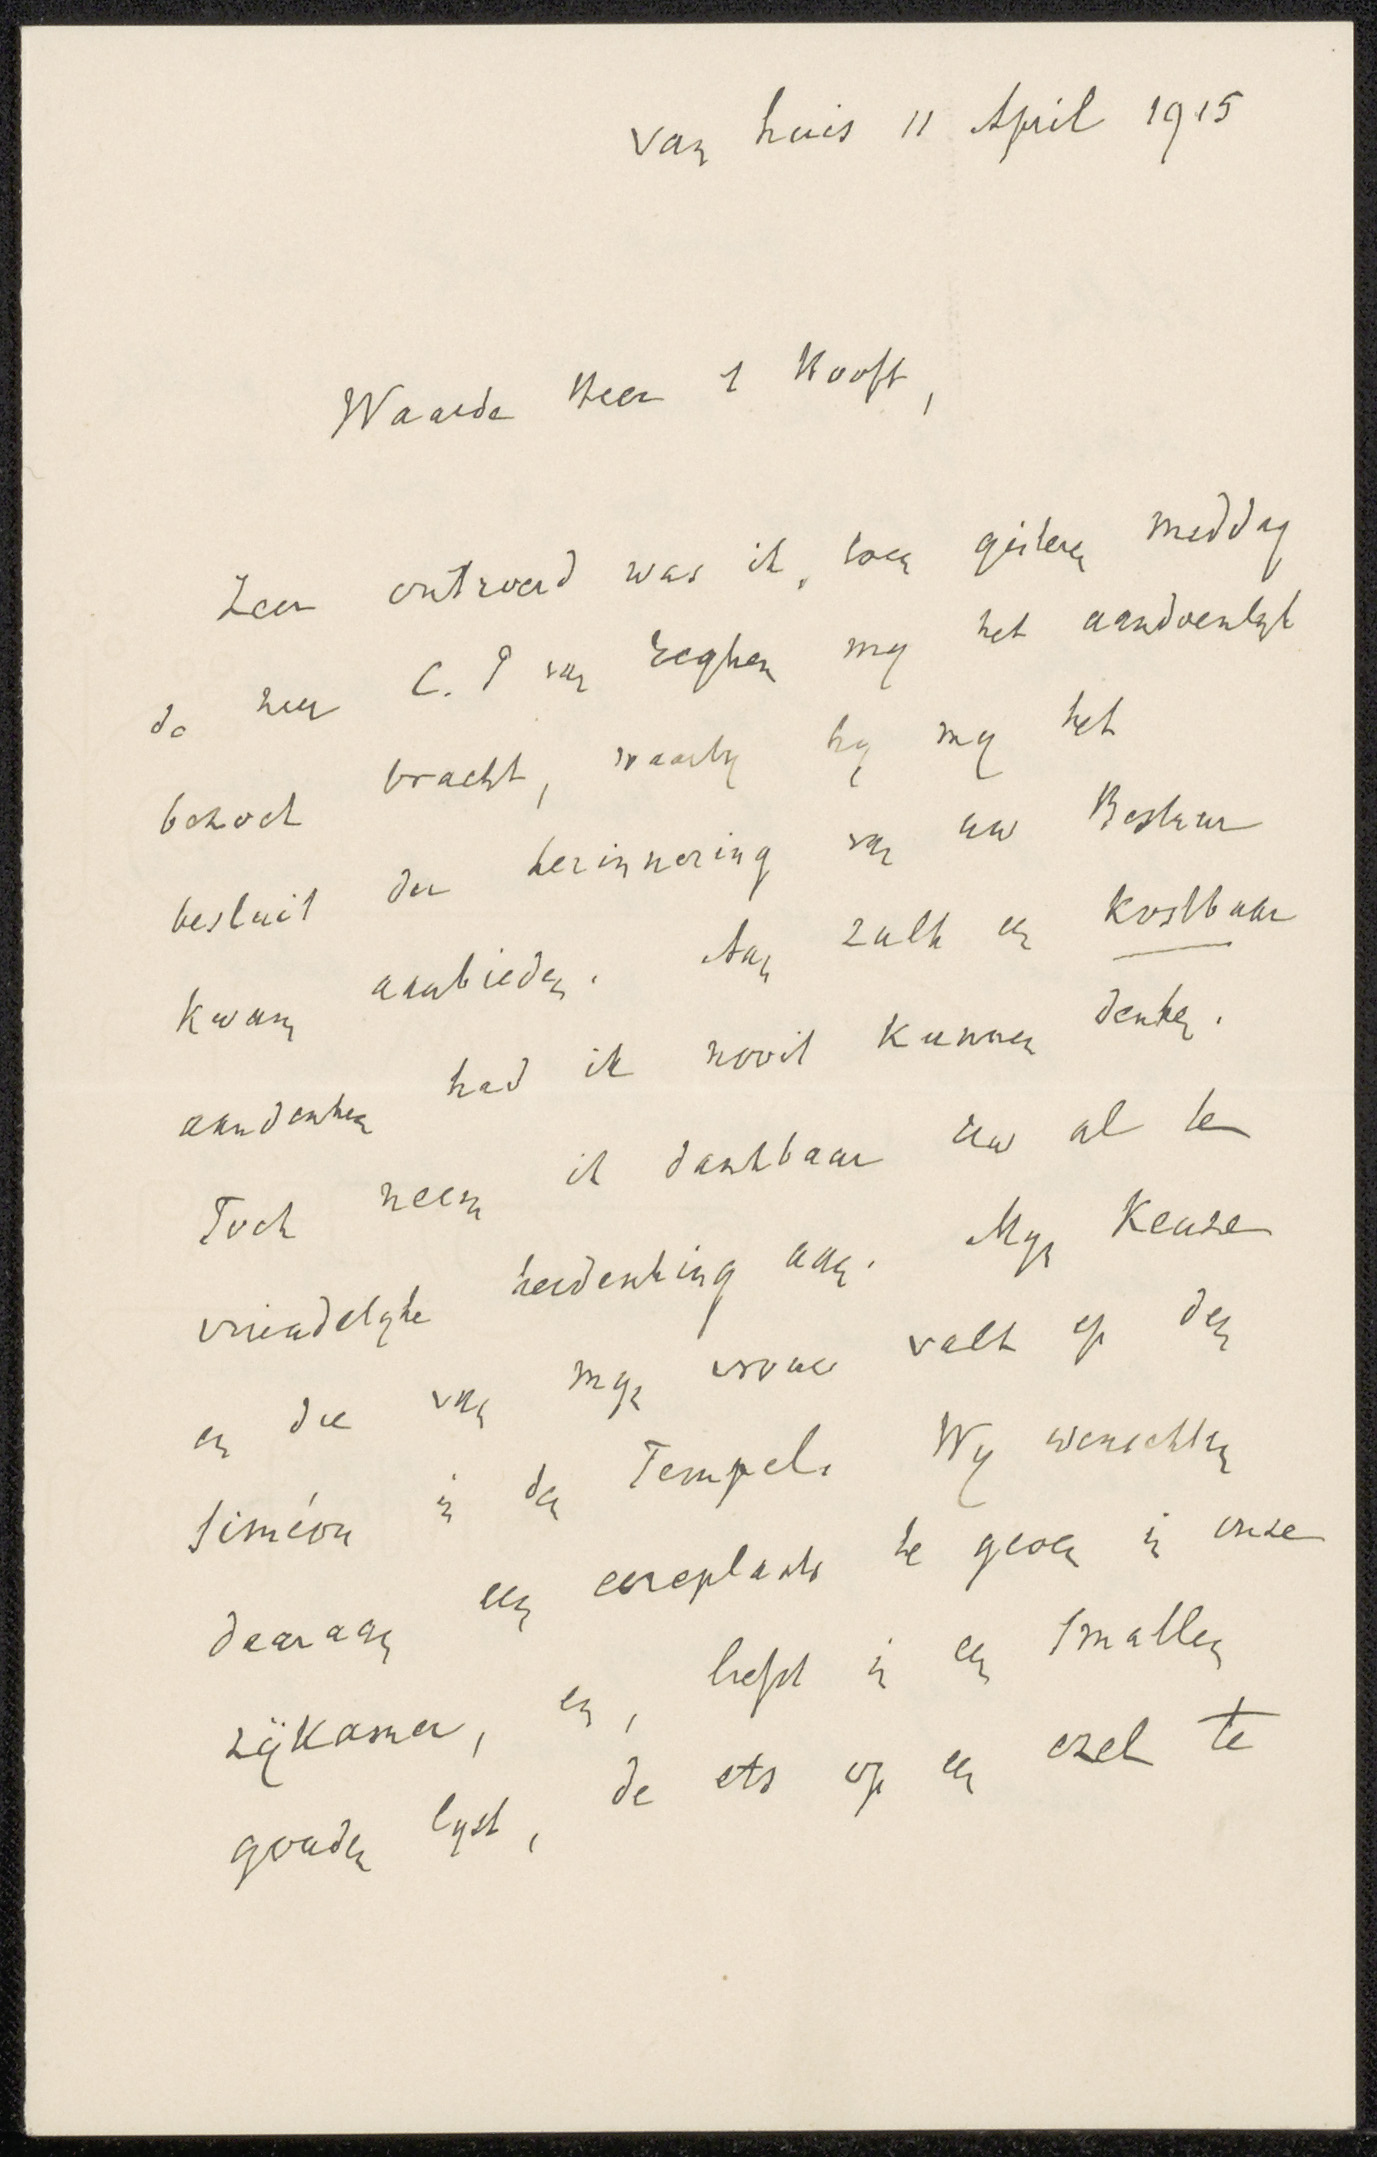 van huis 11 April 1915
Waarde Heer 't Hooft,
Zeer ontroerd was ik, toen gisteren middag
de heer C. P van Eeghen mij het aandoenlijk
bezoek bracht, waarbij hij mij het
besluit der herinnering van uw Bestuur
kwam aanbieden. Aan zulk een kostbaar
aandenken had ik nooit kunnen denken.
Toch neem ik dankbaar uw al te
vriendelijke herdenking aan. Mijn Keuze
en die van mijn vrouw valt op den
Siméon in den Tempel. Wij wenschten
daaraan een eereplaats te geven in onze
zijkamer, en, liefst in een smallen
gouden lijst, de ets op een ezel te